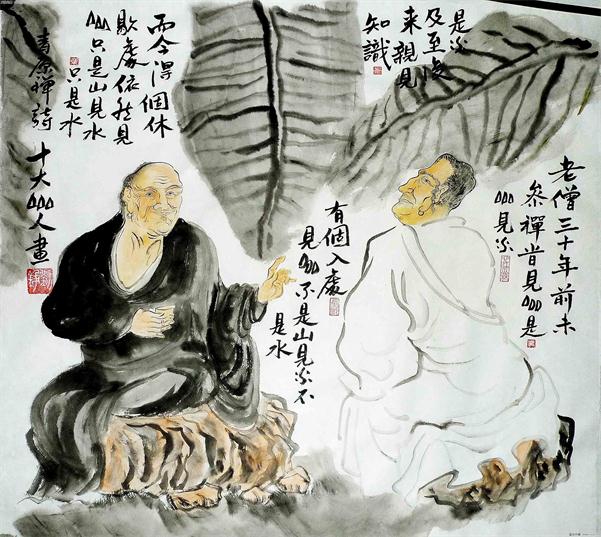 老僧三十年前未
參禪昔見山是
山見水
是水
及至後
來親見
知識
有個入處
見山不是山見水不
是水
而今得個休
歇處依然見
山只是山見水
只是水
青原禪詩
十大山人畫